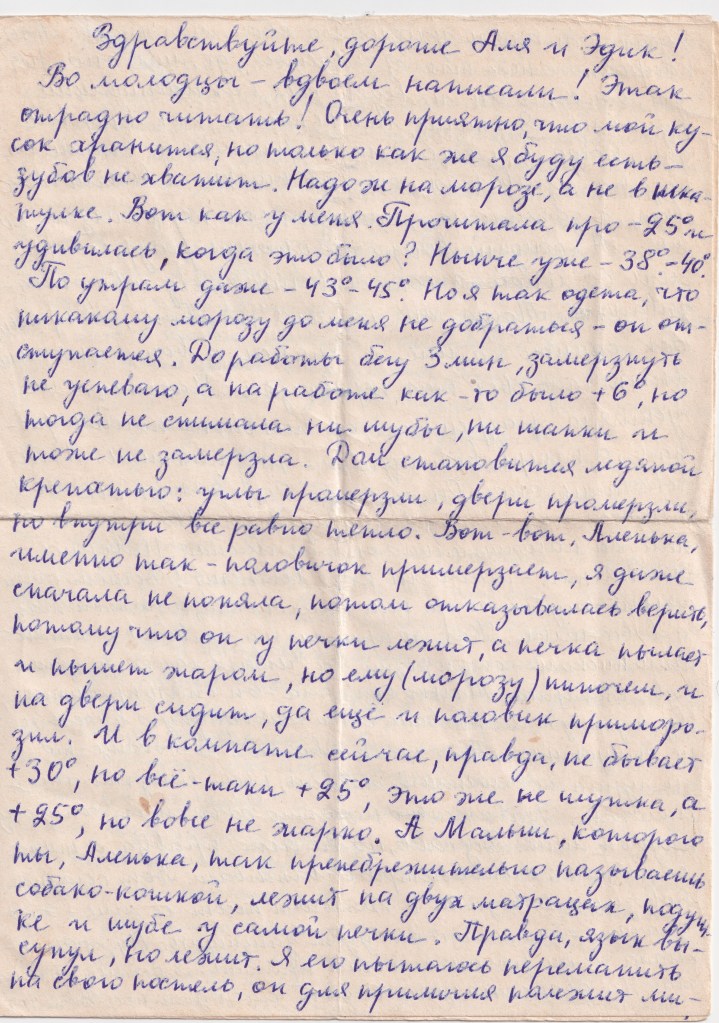 Здравствуйте, дорогие Аля и Эдик!
Во молодцы – вдвоем написали! Этак
отрадно читать! Очень приятно, что мой ку-
сок хранится, но только как же я буду есть –
зубов не хватит. Надо ж на морозе, а не в шка-
тулке. Вот как у меня. Прочитала про -25° и
удивилась, когда это было? Нынче уже -38°-40°.
По утрам даже -43°-45°. Но я так одета, что
никакому морозу до меня не добраться – он от-
ступается. До работы бегу 3 мин, замерзнуть
не успеваю, а на работе как-то было +6°, но
тогда не снимала ни шубы, ни шапки и
тоже не замерзла. Дом становится ледяной
крепостью: углы промерзли, двери промерзли,
но внутри всё равно тепло. Вот-вот, Аленька,
именно так – половичок примерзает, я даже
сначала не поняла, потом отказывалась верить,
потому что он у печки лежит, а печка пылает
и пышет жаром, но ему (морозу) нипочем, и
на двери сидит, да ещё и половик приморо-
зил. И в комнате сейчас, правда, не бывает
+30°, но всё-таки +25°, это же не шутка, а
+25°, но вовсе не жарко. А Малыш, которого
ты, Аленька, так пренебрежительно называешь
собако-кошкой, лежит на двух матрацах, подуш-
ке и шубе у самой печки. Правда, язык вы-
сунул, но лежит. Я его пытаюсь переманить
на свою постель, он для приличия полежит ми-